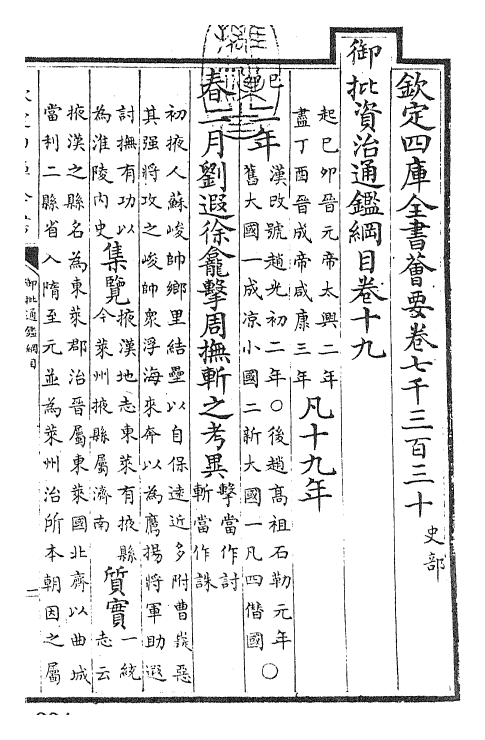 欽定四庫全書薈要卷七千三百三十 史部
御批資治通鑑綱目卷十九
起己卯晉元帝太興二年
盡丁酉晉成帝咸康三年
凡十九年
己卯
二年
漢改號趙光初二年○後趙高祖石勒元年○
舊大國一成凉小國二新大國一凡四僭國
春二月劉遐徐龕擊周撫斬之考異
擊當作討
斬當作誅
初掖人蘇峻帥鄉里結壘以自保遠近多附曹嶷惡
其强將攻之峻帥衆浮海來奔以為鷹揚將軍助遐
討撫有功以
為淮陵内史
集覽
掖漢地志東萊有掖縣
今萊州掖縣屬濟南
質實
一統
志云
掖漢之縣名為東萊郡治晉屬東萊國北齊以曲城
當利二縣省入隋至元並為萊州治所本朝因之屬
御批通鑑綱目
一